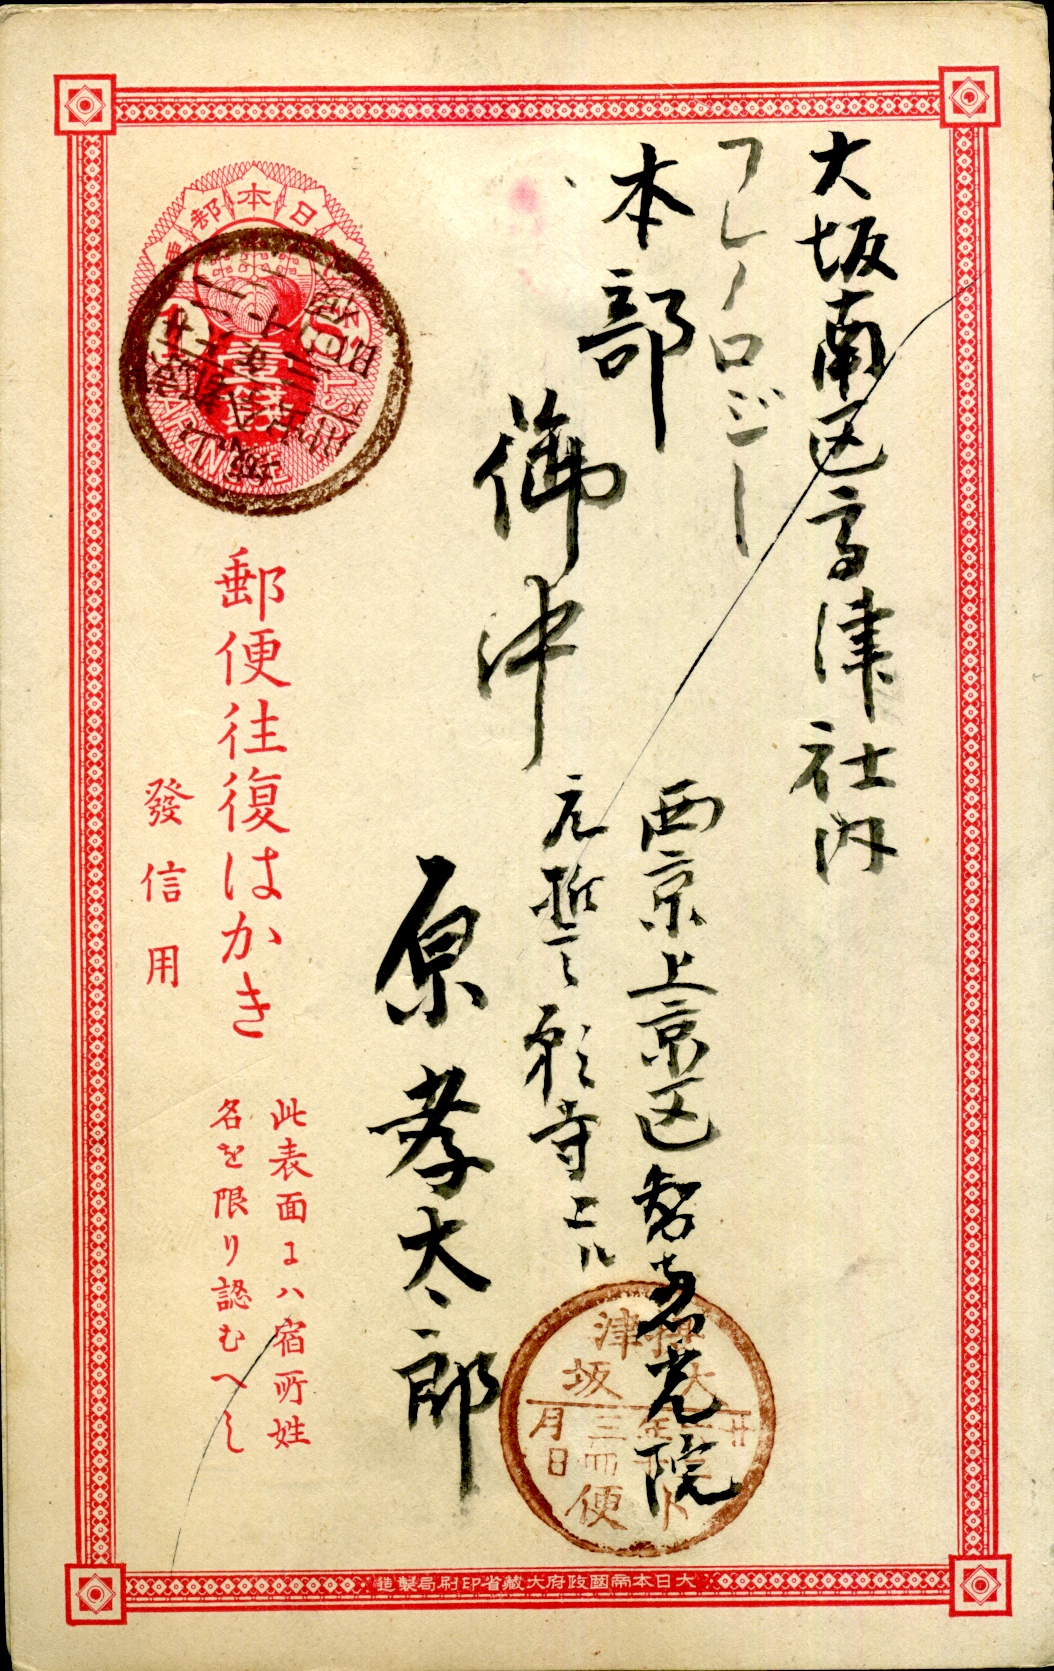 大坂南区高津社内
フレノロジー
本部
御中
西京上京区智恵光院
元誓願寺上ル
原孝太郎
日本郵便
壹銭
郵便往復はかき
發信用
此表面ヱハ宿所姓
名を限り認むへし
大日本帝國政府大藏省印刷局製造
摂津
大坂
三
便
月
日